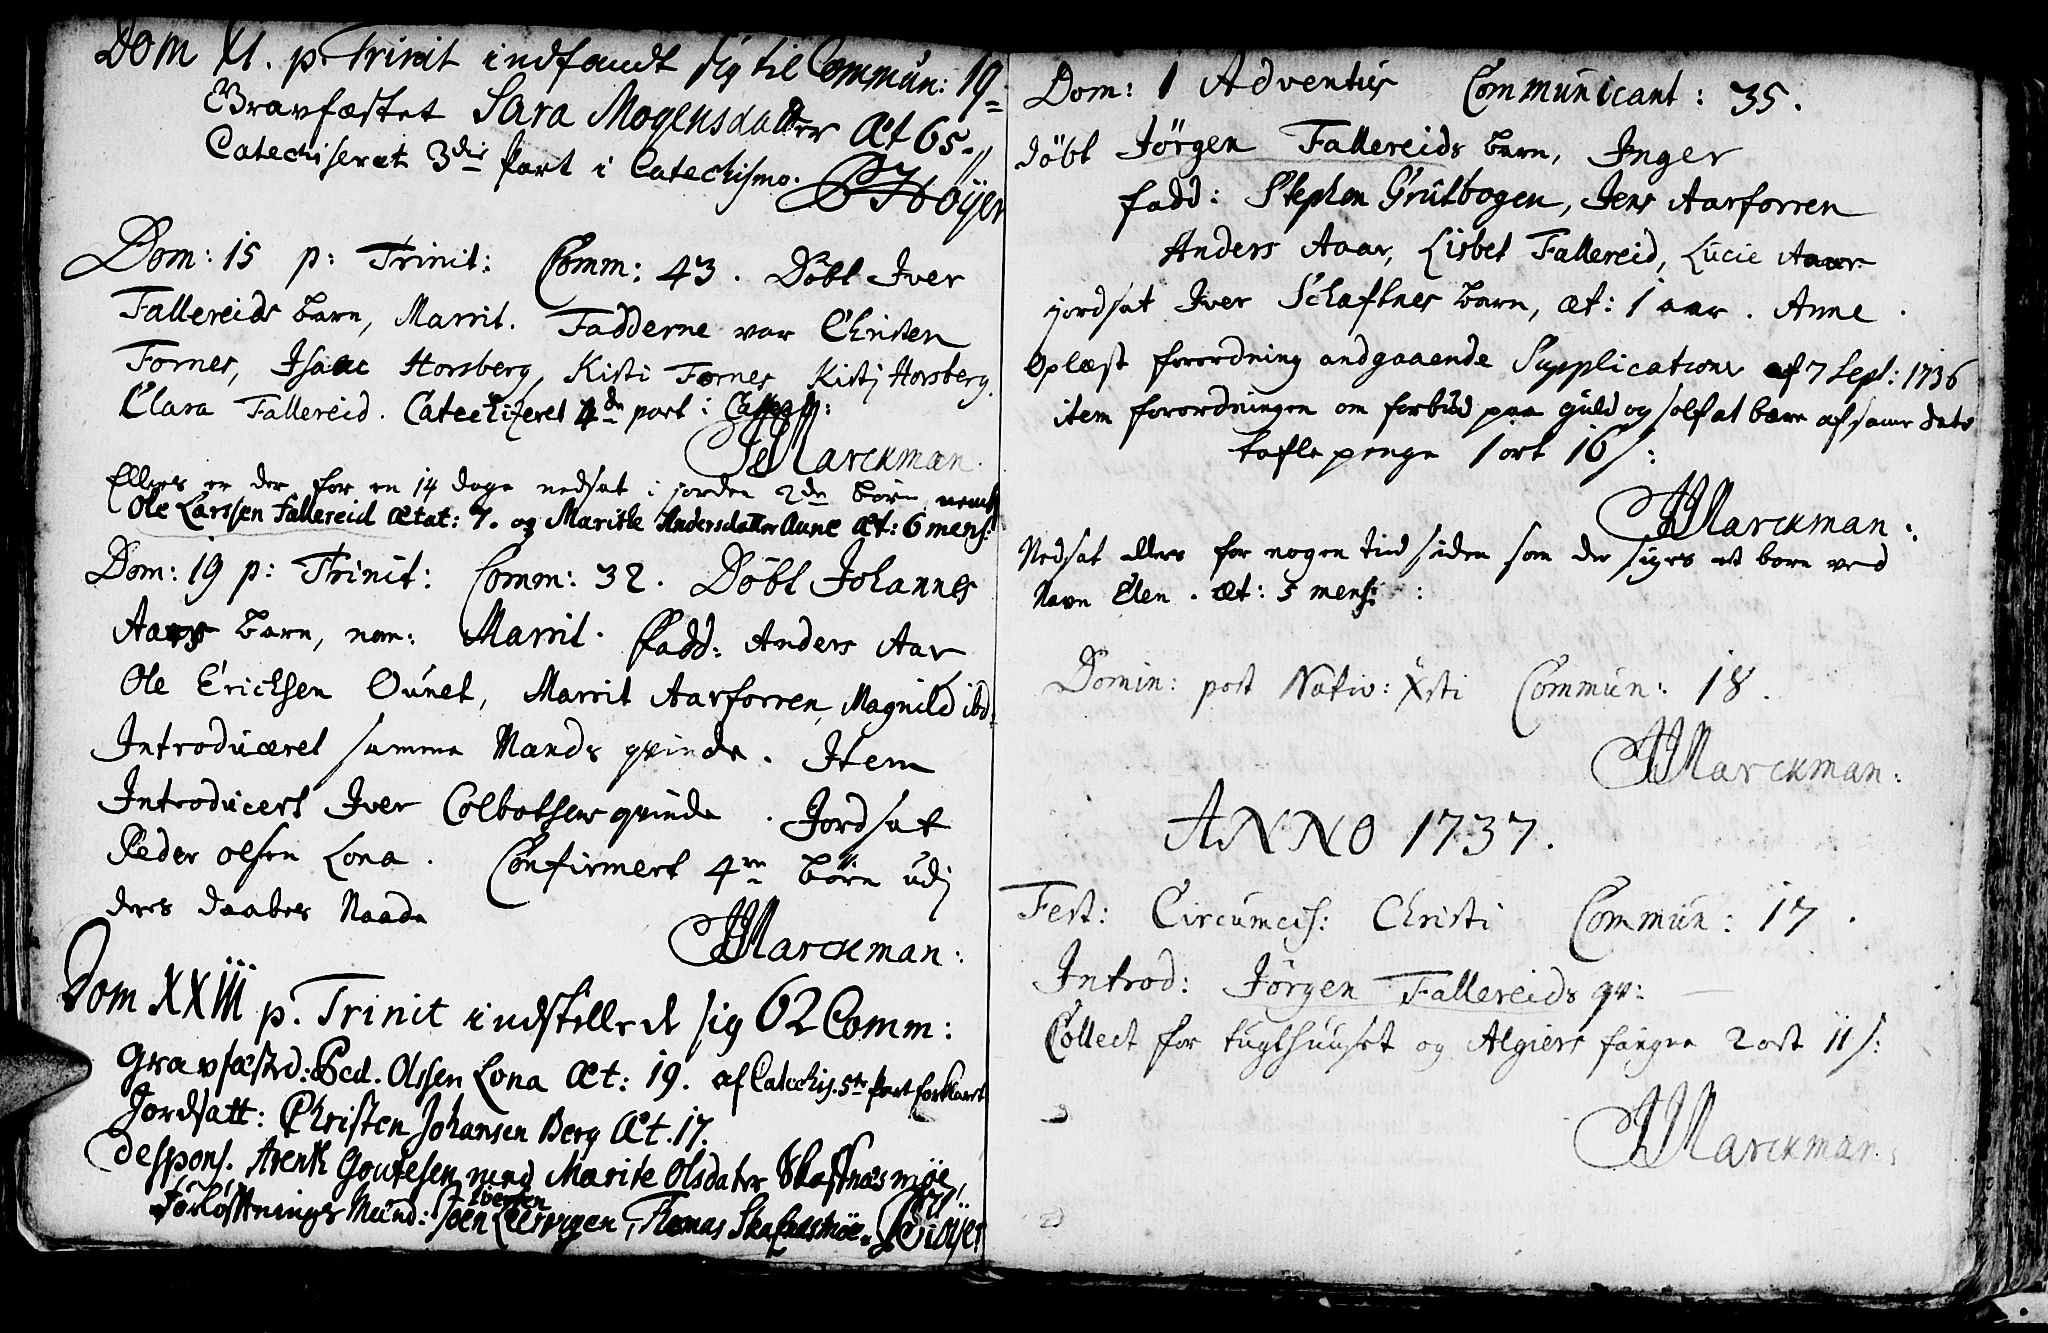 Dom XI. p. Trinit indfandt sig til Commun: 19
Gravfæstet Sara Mogensdatter Æt 65.
Catechiseret 3die Part i Catechismo. Höÿer
Dom: 15 p: Trinit: Comm: 43. Döbt Iver
Fallereids barn, Marrit. Fadderne var Christen
Fornes, Isaac Horsberg, Kisti Fornes Kistj Horsberg.
Clara Fallereid. Catechizeret 4de part i
Marckman.
Ellers er der for en 14 dage nedsat i jorden 2de børn
Ole Larssen Fallereid ætat: 7. og Maritte Andersdatter Aune æt: 6 mens:
Dom: 19 p: Trinit: Comm: 32. Döbt Johannes
Aars barn, nom: Marrit. Fadd: Anders Aar
Ole Ericksen Ounet, Marrit Aarforren, Magnild ibd.
Introduceret samme Mands qvinde. Item
Introducert Iver Colbotsens qvinde. Jordsat
Peder olsen Lona. Confirmert 4re börn udj
deres daabes Naade
Marckman:
Dom XXIII p. Trinit indstillede sig 62 Comm:
Gravfæsted: Ped. Olssen Lona Æt: 19. af Catechis. 5te Part forklaret
Jordsatt: Christen Johansen Berg Æt. 17.
Despons. Arent Goutesen med Marite Olsdater Skaftnæsmöe,
Forlöftnings Mænd: Joen Iversen, Thomas Skaftnæsmöe. Höÿer
Dom: 1 Adventus Communicant: 35.
döbt Jörgen Fallereids barn, Inger
fadd: Stephen Grutbogen, Jens Aarforren
Anders Aaar, Lisbet Fallereid, Lucie Aaar
jordsat Iver Schaftnes barn, æt: 1 aar. Anne.
Oplæst forordning andgaaende Supplications af 7 Sept: 1736
item forordningen om forbud paa guld og solf at bære af samme dato
tafle penge 1 ort 16 s:
Marckman:
Nedsat ellers for nogen tiid siden som der siges et barn ved
Navn Elen. æt: 3 mens:
Domin: post Nativ: Xsti Commun: 18.
Marckman:
ANNO 1737.
Fest: Circumcis: Christi Commun: 17.
Introd: Jörgen Fallereids qv:
Collect for tugthuuset og Algiers fangne 2 ort 11 s:
Marckman: